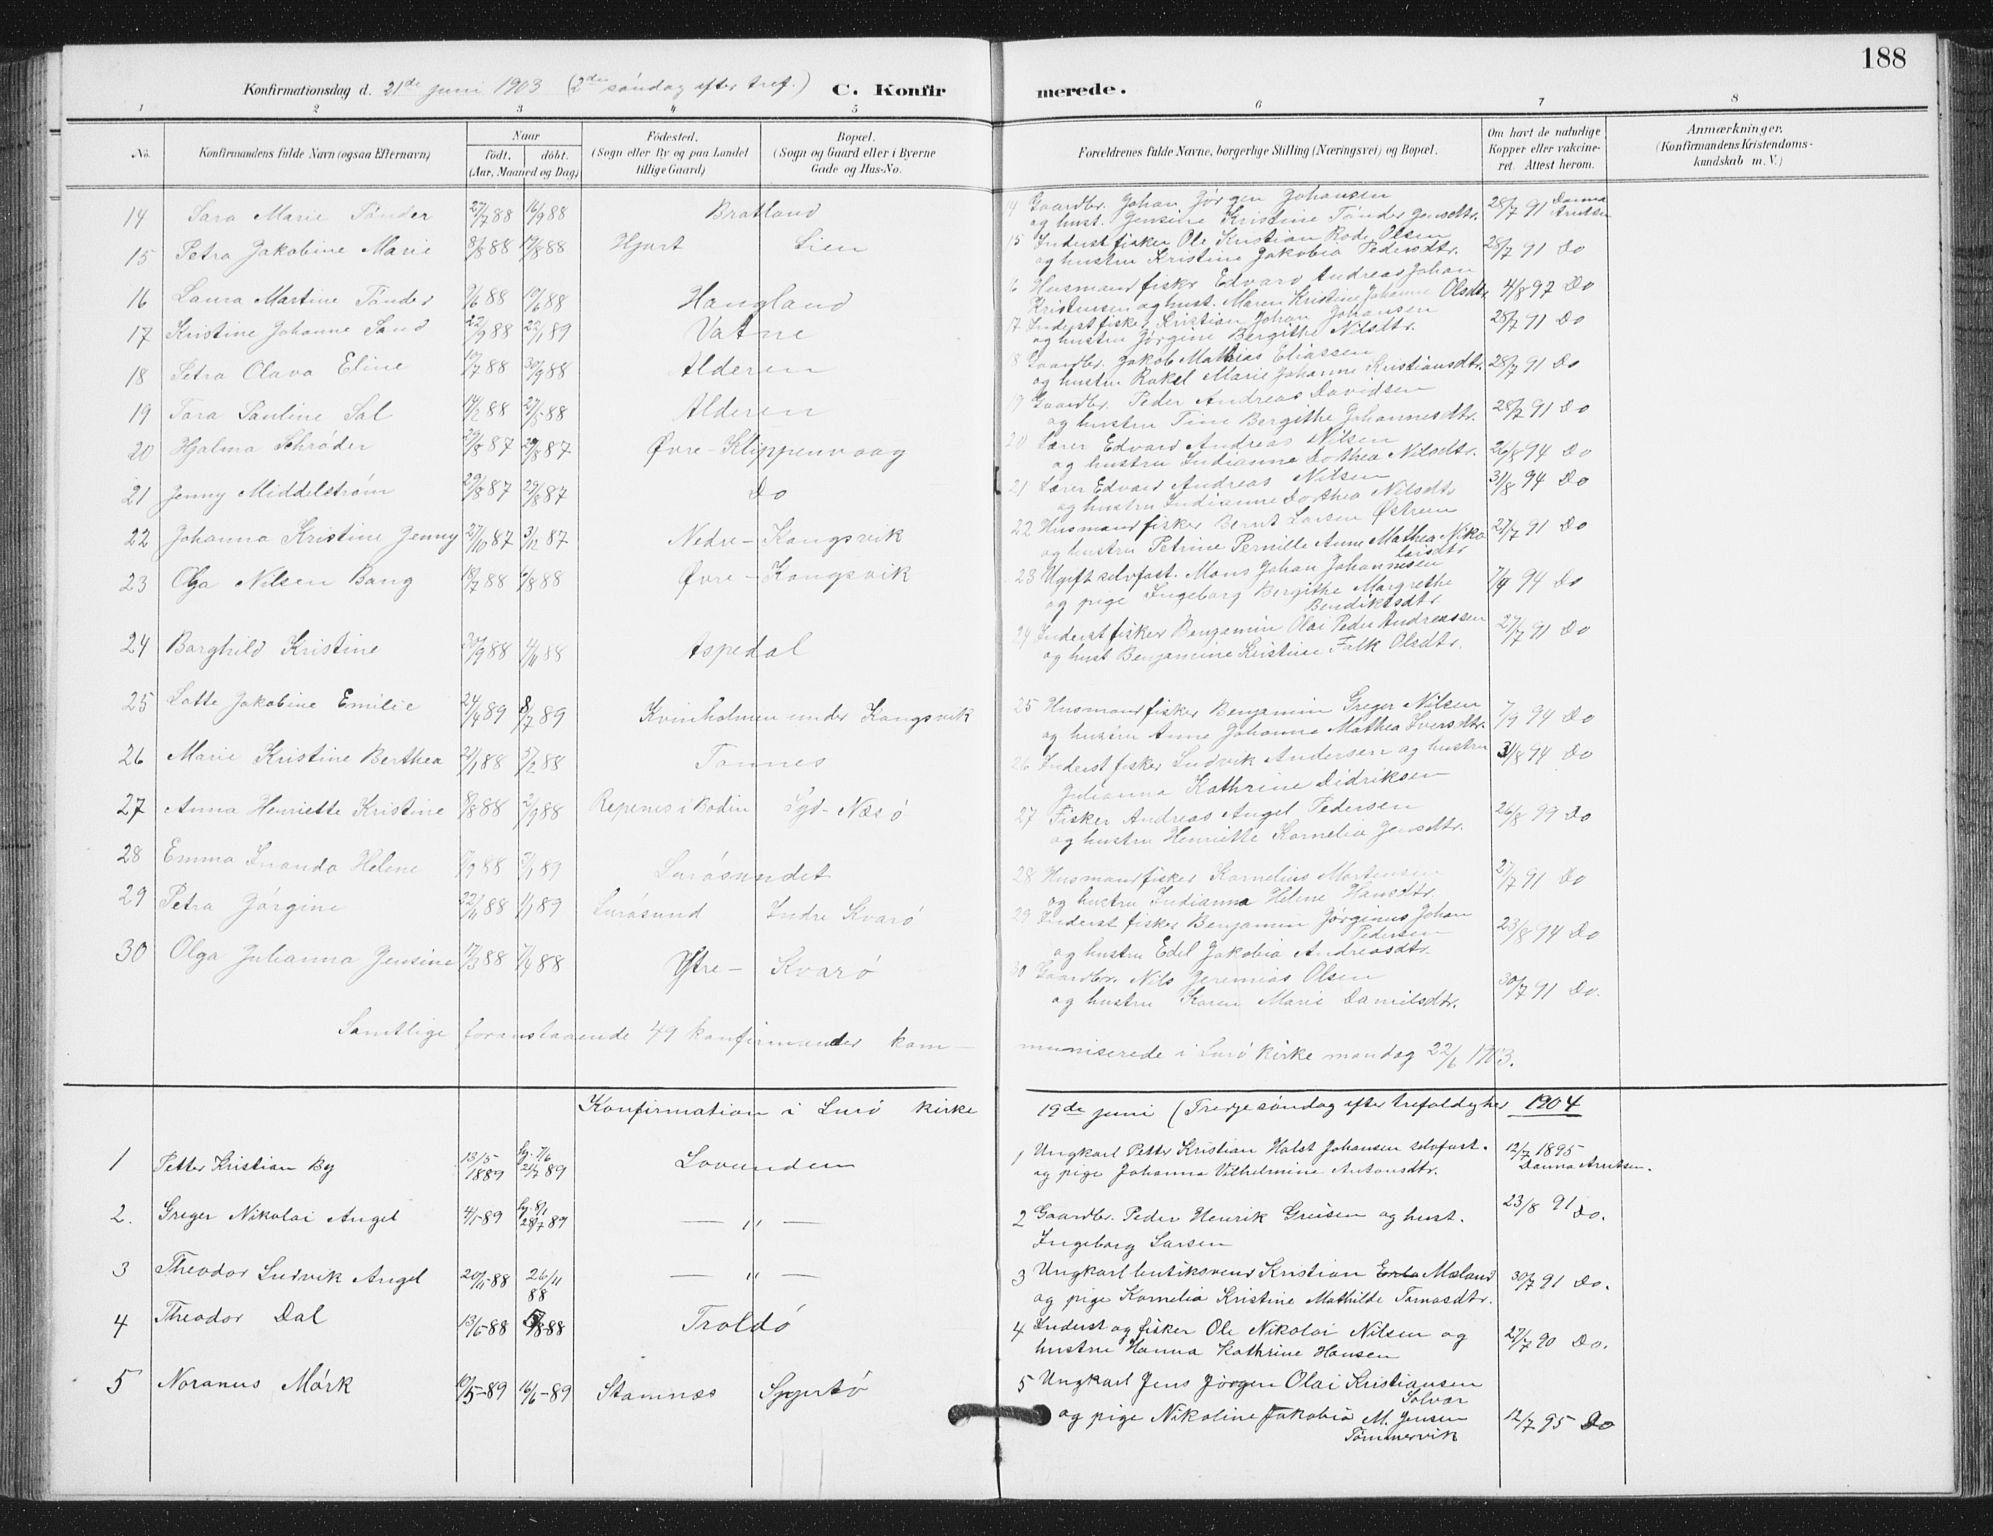 188
Konfirmationsdag d. 21de juni 1903 (2den søndag efter tref.) C. Konfirmerede.
1 2 3 4 5 6 7 8
No. Konfirmandens fulde Navn (ogsaa Efternavn) Naar født, døbt. (Aar, Maaned og Dag) Fødested. (Sogn eller By og paa Landet tillige Gaard) Bopæl. (Sogn og Gaard eller i Byerne Gade og Hus-No. Forældrenes fulde Navne, borgerlige Stilling (Næringsvei) og Bopæl. Om havt de naturlige Kopper eller vakcineret. Attest herom. Anmærkninger. (Konfirmandens Kristendomskundskab m. V.)
14 Sara Marie Tønder 27/7 88 16/9 88 Bratland 14 Gaardbr. Johan Jørgen Johansen 28/7 91 Danna Arntsen
og hust. Jensine Kristine Tønder Jensdtr.
15 Petra Jakobine Marie 8/8 88 19/8 88 Hjart Lien 15 Inderst fisker Ole Kristian Rode Olsen 28/7 91 Do
og hustru Kristine Jakobia Pedersdtr.
16 Laura Martine Tønder 9/6 88 19/6 88 Haugland 16 Husmand fisker Edvard Andreas Johan 4/8 97 Do
Kristensen og hust. Maren Kristine Johanne Olsdtr.
17 Kristine Johanne Sand 22/9 88 22/1 89 Vatne 17 Inderst fisker Kristian Johan Johansen 28/7 91 Do
og hustru Jørgine Bergithe Nilsdtr.
18 Petra Olava Eline 19/7 88 30/9 88 Alderen 18 Gaardbr. Jakob Mathias Eliassen 28/7 91 Do
og hustru Rakel Marie Johanne Kristiansdtr.
19 Tora Pauline Sal 14/2 88 Alderen 19 Gaardbr. Peder Andreas Davidsen 28/7 91 Do
og hustru Tine Bergithe Johannesdtr.
20 Hjalma Schrøder 29/8 87 29/8 87 Øvre-Klippenvaag 20 Lærer Edvard Andreas Nilsen 26/8 94 Do
og hustru Indianna Dorthea Nilsdtr.
21 Jenny Middelstrøm 29/8 87 29/8 87 Do 21 Lærer Edvard Andreas Nilsen 31/8 94 Do
og hustru Indianne Dorthea Nilsdtr
22 Johanna Kristine Jenny 27/10 87 3/12 87 Nedre-Kongsvik 22 Husmand fisker Bernt Larsen Østrem 27/7 91 Do
og hustru Petrine Pernille Anne Mathea Nikolaisdtr
23 Olga Nilsen Bang 18/7 88 6/8 88 Øvre-Kongsvik 23 Ugift selvfost. Mons Johan Johannesen 7/9 94 Do
og pige Ingeborg Bergithe Margrethe
Bendiktsdtr
24 Borghild Kristine 30/9 88 4/11 88 Aspedal 24 Inderst fisker Benjamin Olai Peder Andreassen 27/7 91 Do
og hust Benjamine Kristine Falk Olsdtr.
25 Lotte Jakobine Emilie 24/4 89 8/7 89 Kvinholmen under Kongsvik 25 Husmand fisker Benjamin Greger Nilsen 7/9 94 Do
og hustru Anne Johanna Mathea Iversdtr.
26 Marie Kristine Berthea 21/1 88 5/2 88 Tonnes 26 Inderst fisker Ludvik Andersen og hustru 31/8 94 Do
Julianna Kathrine Didriksen
27 Anna Henriette Kristine 8/8 88 2/9 88 Repenes i Bodin Syd-Næsø 27 Fisker Andreas Angel Pedersen 26/8 99 Do
og hustru Henriette Kornelia Jensdtr.
28 Emma Inanda Helene 88 89 Lurøsundet 28 Husmand fisker Kornelius Mortensen 27/7 91 Do
og hustru Indianna Helene Hansdtr
29 Petra Jørgine 22/11 88 1/1 89 Lurøsund Indre Kvarø 29 Inderst fisker Benjamin Jørginus Johan Pedersen 23/8 94 Do
og hustru Edel Jakobia Andreasdtr.
30 Olga Julianna Jensine 17/3 88 7/4 88 Ytre-Kvarø 30 Gaardbr. Nils Jeremias Olsen 30/7 91 Do.
og hustru Karen Marie Danielsdtr.
Samtlige foranstaaende 49 konfirmander kommuniserede i Lurø kirke mandag 22/6 1903.
Konfirmation i Lurø kirke 19de juni (Tredje søndag efter trefoldighed 1904
1 Petter Kristian By 13/5 1889 hj. 7/6 21/7 89 Lovunden 1 Ungkarl Petter Kristian Holst Johansen selvfost. 12/7 1895 Danna Arntsen.
og pige Johanna Vilhelmine Antonsdtr.
2. Greger Nikolai Angel 4/1-89 hj. 8/1 28/7 89 — " — 2 Gaardbr. Peder Henrik Greisen og hust. 23/8 91 Do.
Ingeborg Larsen
3 Theodor Ludvik Angel 20/11-88 26/11 88 — " — 3 Ungkarl butiksvend Kristian Mæland 30/7 91 Do.
og pige Kornelia Kristine Mathilde Tomasdtr.
4 Theodor Dal 13/6-88 5/8-88 Troldø 4 Inderst og fisker Ole Nikolai Nilsen og 27/7 90 Do.
hustru Hanna Kathrine Hansen
5 Noranus Mørk 19/5-89 16/6-89 Stamnæs Sygertø 5 Ungkarl Jens Jørgen Olai Kristiansen
Solvær
og pige Nikoline Jakobia M. Jensen 12/7 95 Do
Tømmervik